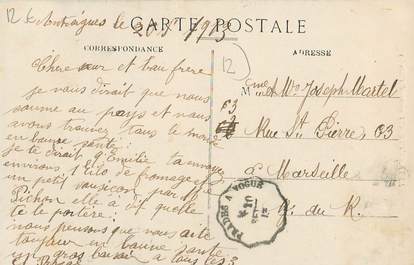 12 Antraigues le 20 5 1913
CARTE POSTALE
CORRESPONDANCE
ADRESSE
12
Chere seur et bau frere
je vous dirait que nous
some au pays et nous
avons trouvez tous le monde
en bonne santé
je te dirait q'Emilie t'a
environs 1 kilo de fromage et
un petit sausison par
Pichon elle a dit quelle
te le portere
nous pensons que vous aite
toujour en bonne sante
un gros baiser a tous les 3
Mme et Mr Joseph Martel
63
Rue St Pierre 63
a Marseille
B. du R.
PRADES A VOGUE